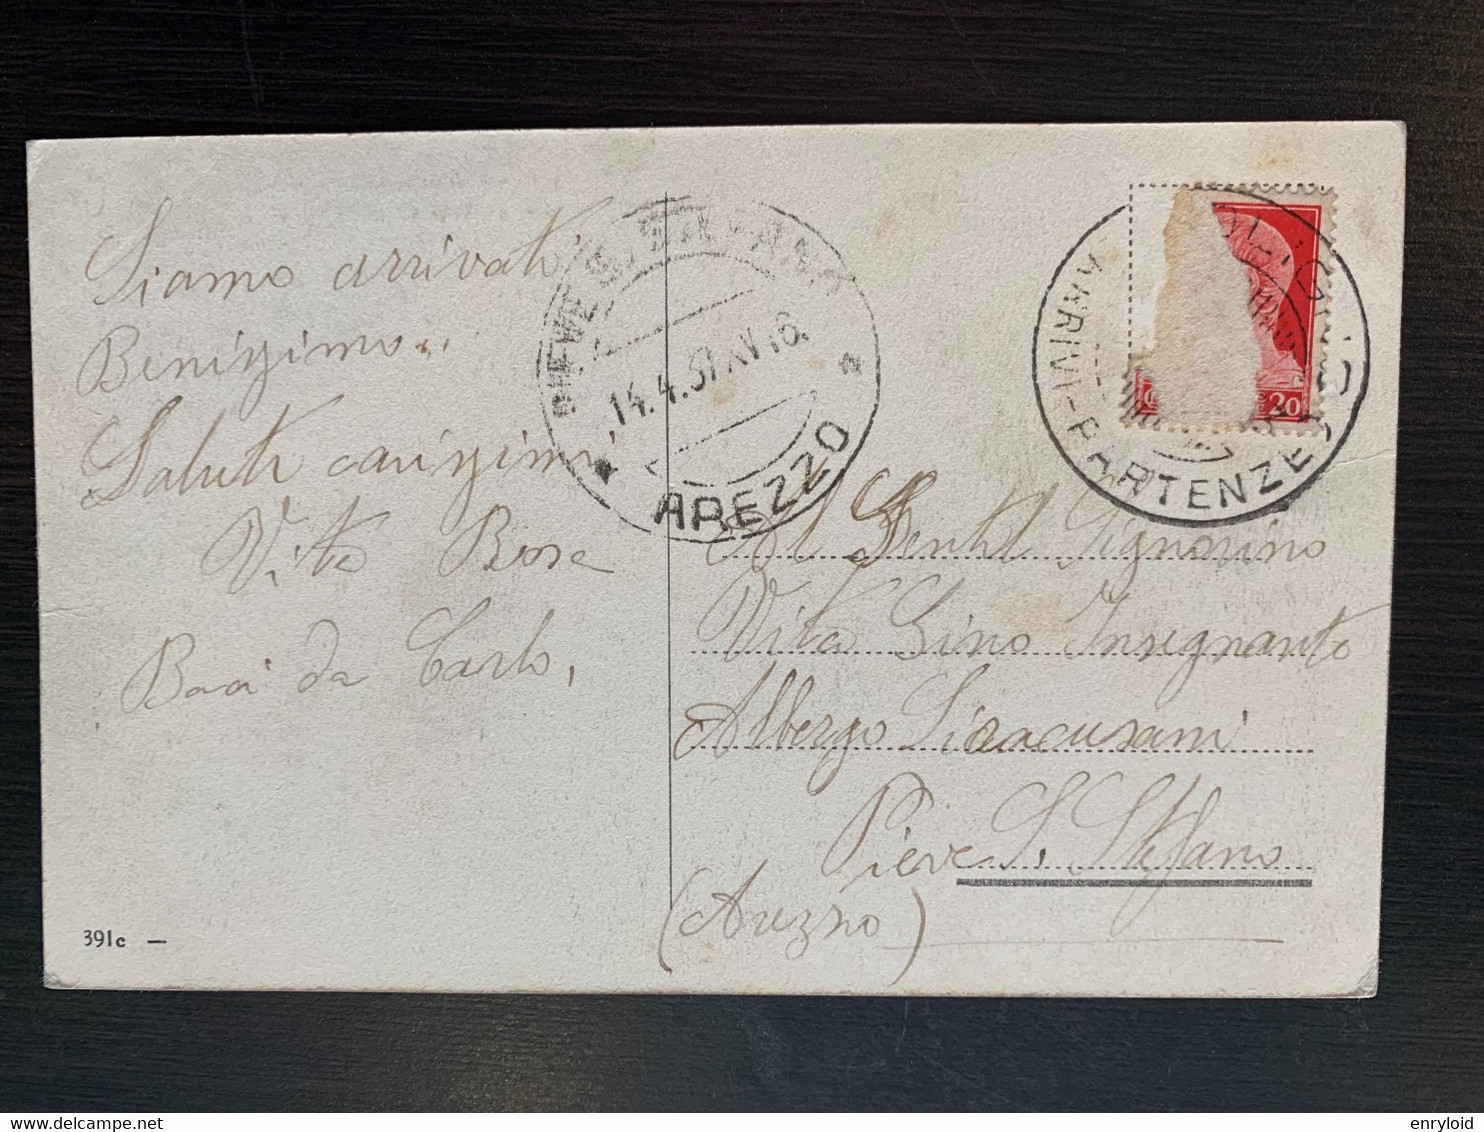 Siamo arrivati
Benissimo..
Saluti carissimi
Vito Rosa
Baci da Carlo,
PIEVE S. STEFANO
14.4.37.XV 16.
AREZZO
ARRIVI-PARTENZE
20
Al Gentil Signorino
Vita Gino Insegnante
Albergo Siracusani
Pieve S. Stefano
(Arezzo)
391c —
enryloid